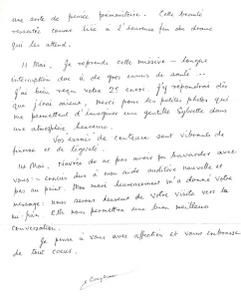 une sorte de pensée prémonitoire. Cette beauté
ressentie comme liée à l'heureuse fin du drame
qui les attend.
11 Mai. Je reprends cette missive - longue
interruption due à de gros ennuis de santé ...
j'ai bien reçu votre 25 encre. J'y répondrai dès
que j'irai mieux, merci pour les petites photos qui
me permettent d'imaginer une gentille Sylvette dans
une atmosphère heureuse.
Vos essais de conteuse sont vibrants de
finesse et de légèreté.
14 Mai. navrée de ne pas avoir pu bavarder avec
vous : ennuis dus à mon aide auditive nouvelle et
pas au point. Mon mari heureusement m'a donné votre
message : nous serons heureux de votre visite vers la
mi-juin. Elle nous permettra une bien meilleure
conversation.
Je pense à vous avec affection et vous embrasse
de tout coeur.